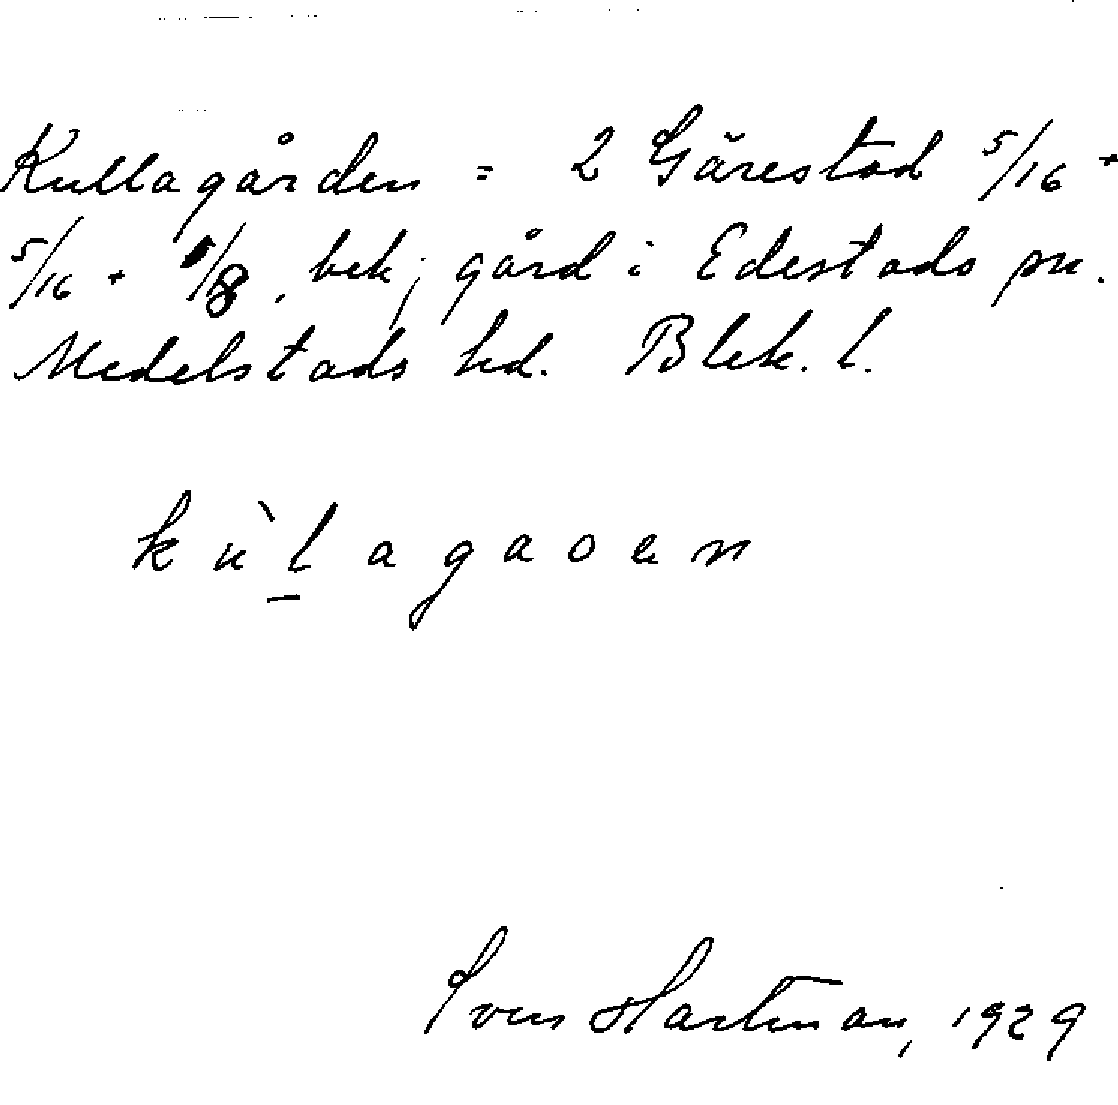 Kullagården = 2 Gärestad 5/16 +
5/16 + 1/8, bek; gård i Edestads sn.
Medelstads hd. Blek. l.
kùlagaoen
Sven Hartman, 1929